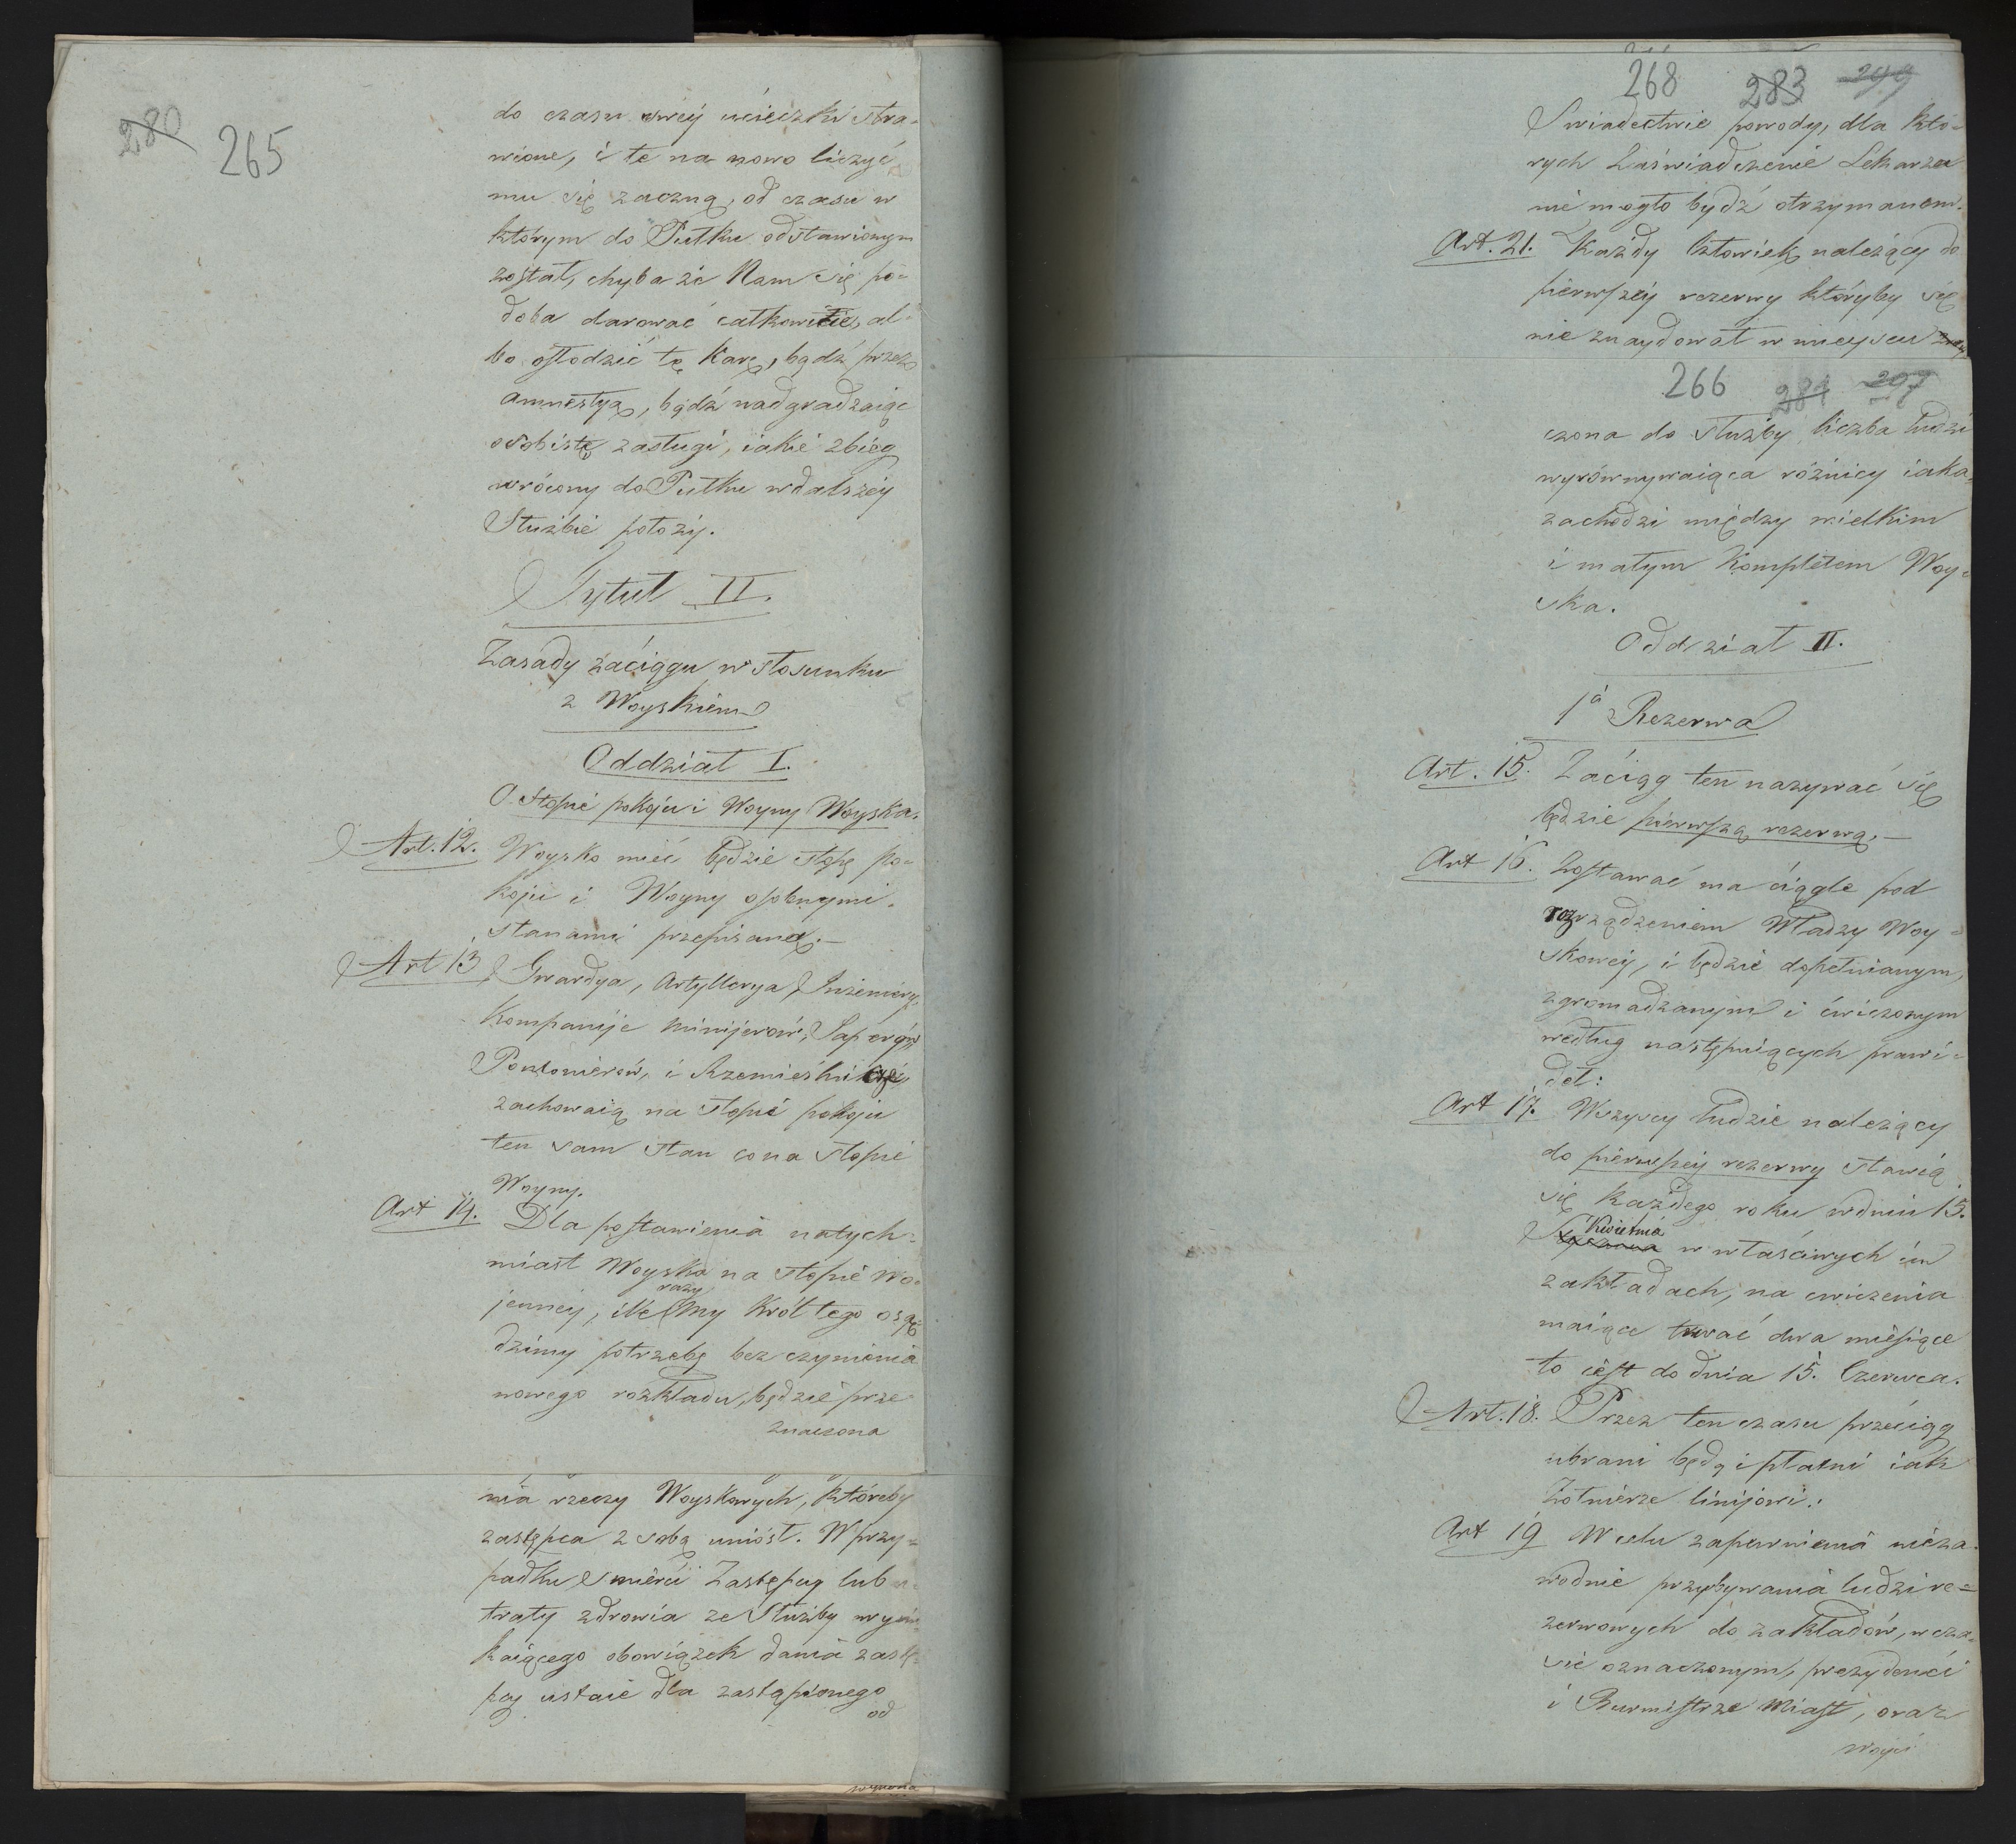 280 265
do czasu swéy ucieczki stra-
wione, i te na nowo liczyć
mu się zaczną, od czasu w
którym do Pułku odstawionym
został, chyba że Nam się po-
doba darować całkowicie, al-
bo osłodzić tę karę, bądź przez
amnestyą, bądź nadgradzaiąc
osobiste zasługi, iakie zbieg
wrócony do Pułku w dalszéy
Służbie położy.
Tytuł II.
Zasady zaciągu w stosunku
z Woyskiem
Oddział I.
O Stopie pokoju i Woyny Woyska.
Art. 12. Woysko mieć będzie stopę po-
koju i Woyny osobnymi
stanami przepisaną.—
Art 13 Gwardya, Artyllerya, Inżeniery,
Kompanije Minijerów, Saperów,
Pontonierów, i Rzemieślnicze
zachowaią na stopie pokoju
ten sam stan co na stopie
Woyny.
Art 14. Dla postawienia natych-
miast Woyska na stopie wo-
razy
jennéj, ile My Król tego osą-
dzimy potrzebę bez czynienia
nowego rozkładu, będzie prze
znaczona
nia rzeczy Woyskowych, któreby
zastępca z sobą uniósł. W przy-
padku Smierci Zastępcy lub u-
traty zdrowia ze Służby wyni-
kaiącego obowiązek dania zastę-
pcy ustaie dla zastąpionego
od
268 283 299
Swiadectwie powody, dla któ-
rych Zaświadczenie Lekarza
nie mogło bydź otrzymanem.
Art. 21. Każdy Człowiek należący do
pierwszéy rezerwy któryby się
nie znaydował w mieyscu
266 281 297
czona do służby liczba ludzi
wyrównywaiąca różnicy iaka
zachodzi między wielkim
i małym Kompletem Woy-
ska.
Oddział II.
1a Rezerwa
Art. 15. Zaciąg ten nazywać się
będzie pierwszą rezerwą.—
Art 16. Zostawać ma ciągle pod
rozrządzeniem Władzy Woy-
skowéy, i będzie dopełnianym,
zgromadzanym i ćwiczonym
według następuiących prawi-
deł:
Art 17. Wszyscy ludzie należący
do pierwszéy rezerwy stawią
się każdego roku w dniu 15.
Kwietnia
w właściwych im
zakładach, na cwiczenia
maiące trwać dwa miesiące
to iest do dnia 15. Czerwca.
Art. 18. Przez ten czasu przeciąg
ubrani będą i płatni iak
Żołnierze linijowi.
Art 19 W celu zapewnienia nieza-
wodnie przybywania ludzi re-
zerwowych do zakładów, w cza-
sie oznaczonym, prezydenci
i Burmistrze Miast, oraz